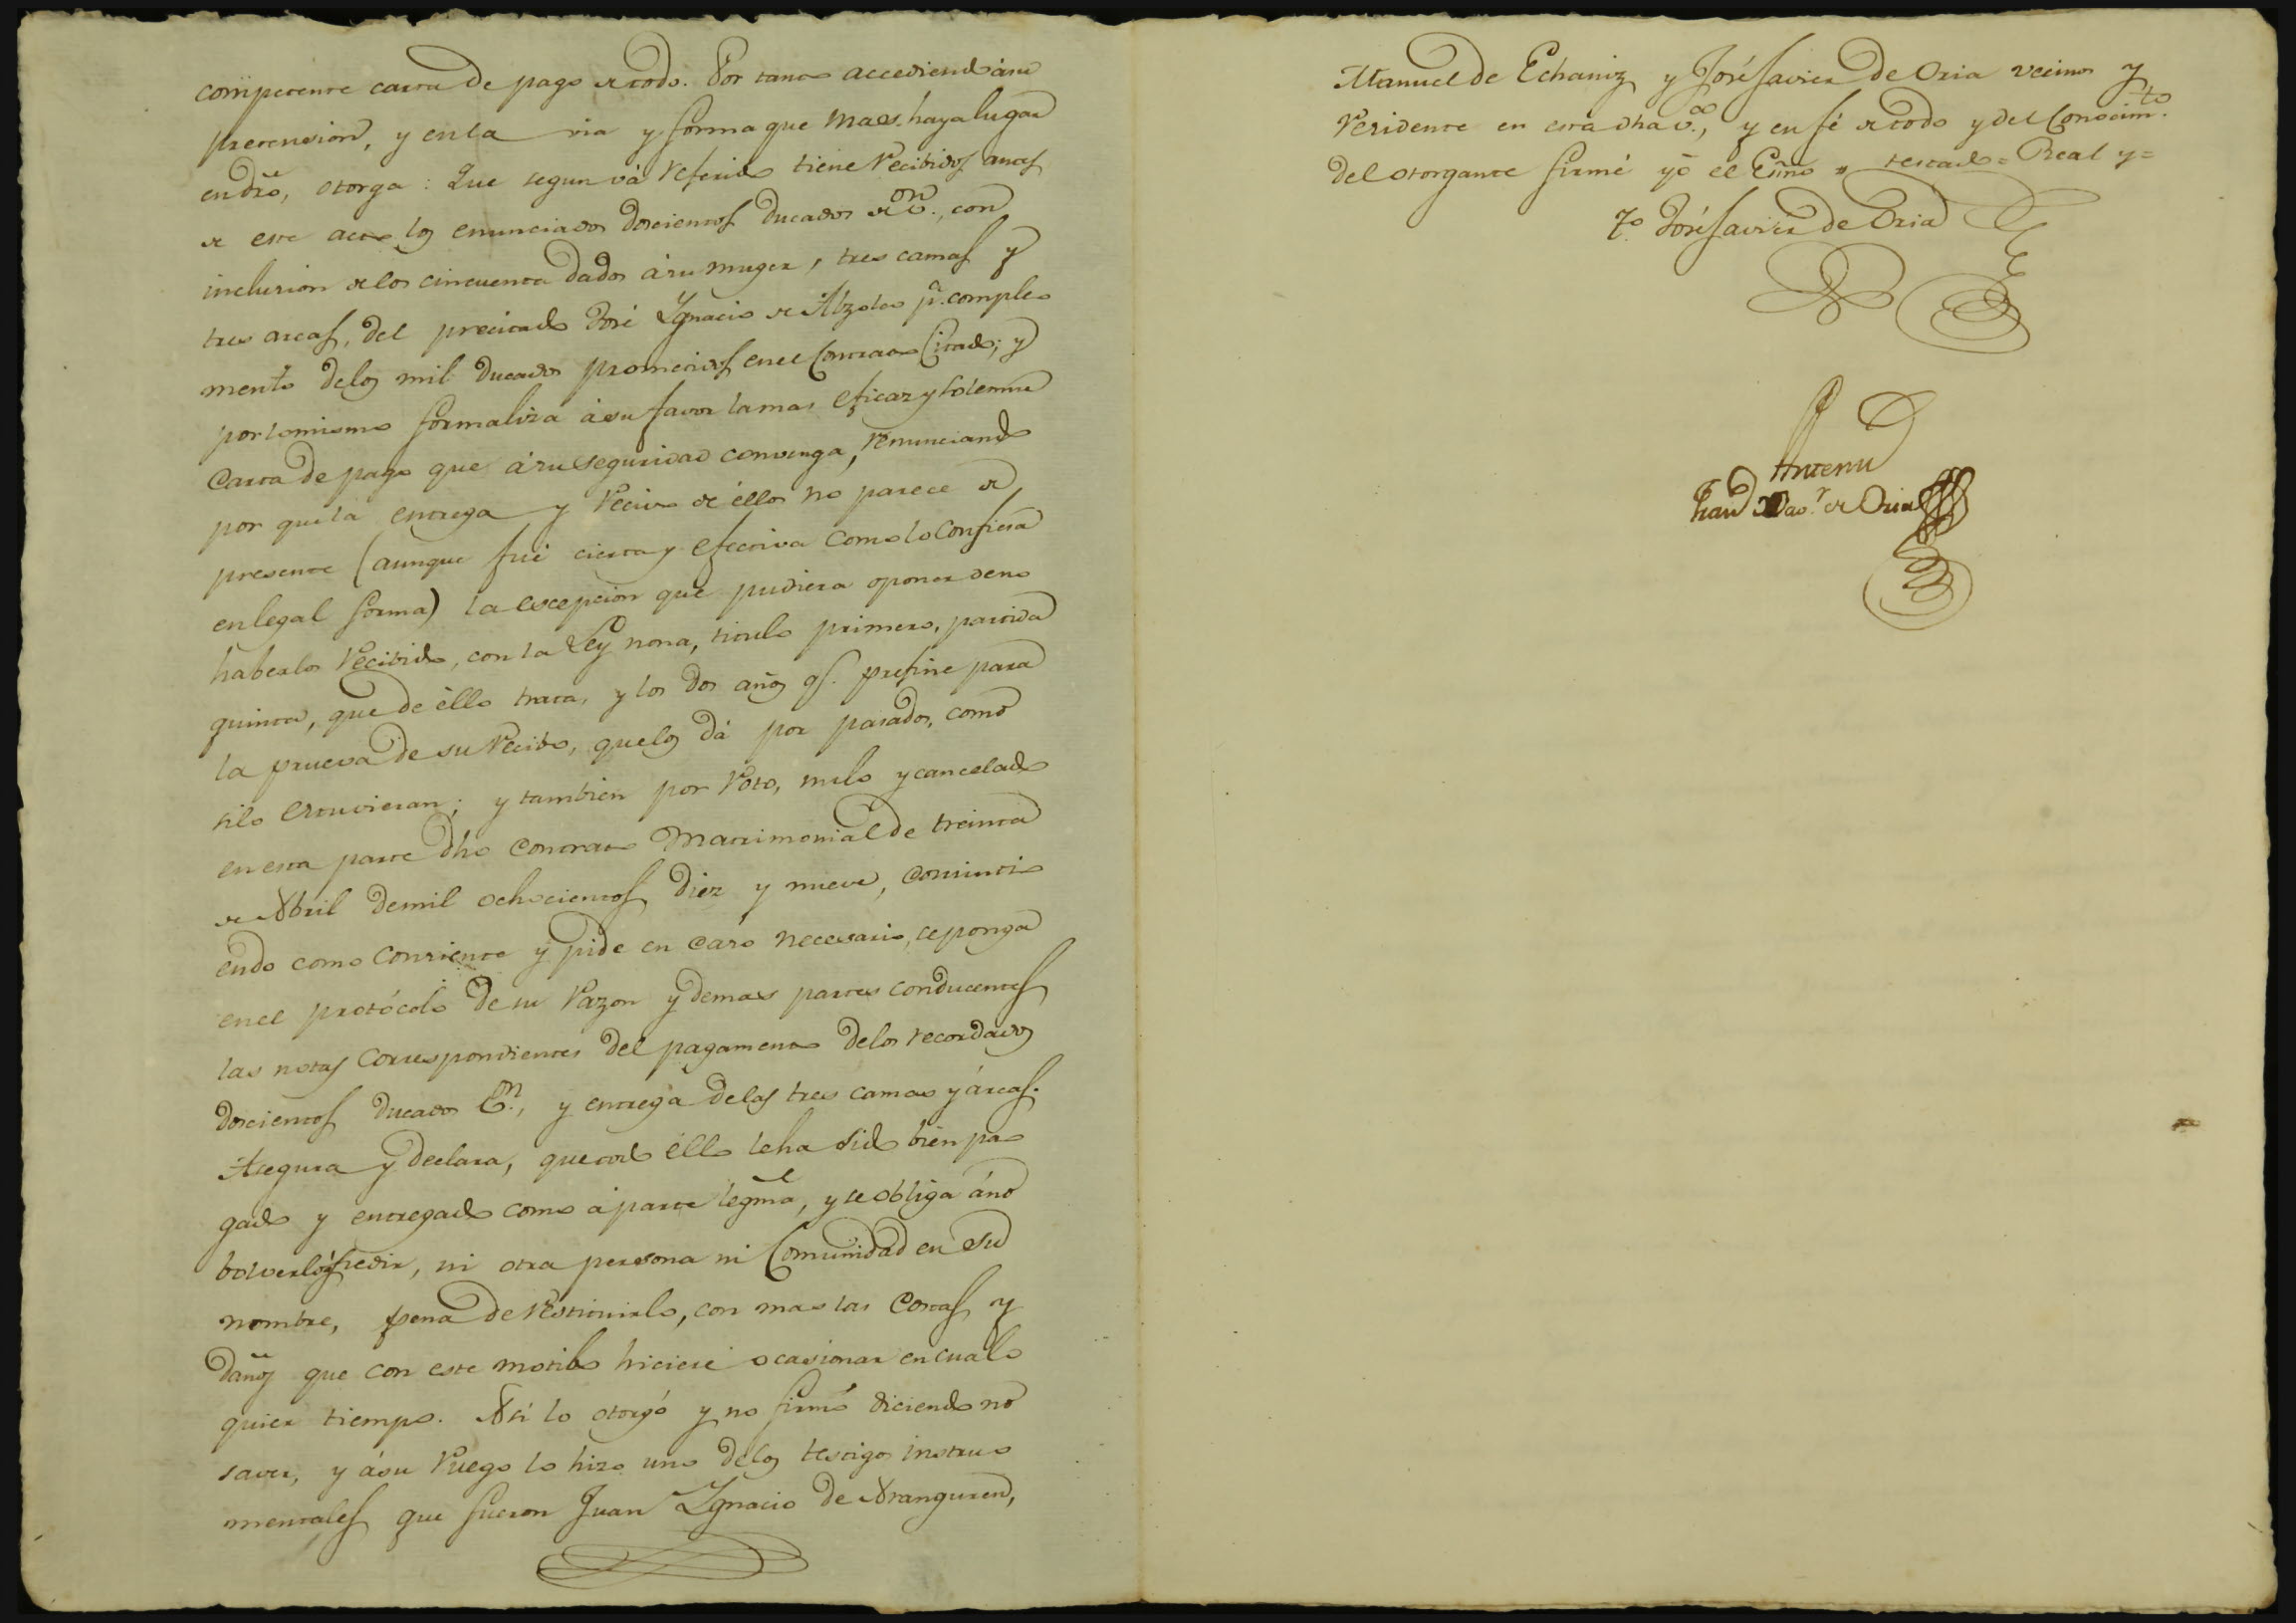 competente carta de pago de todo. Por tanto accediendo á su
pretension, y en la via y forma que mas haya lugar
en dro, otorga: Que segun vá referido tiene recibidos antes
de este acto los enunciados doscientos ducados de von., con
inclusion de los cincuenta dados á su muger, tres camas y
tres arcas, del precitado José Ygnacio de Alzolas pa. comple
mento delos mil ducados prometidos en el Contrato Citado; y
por lo mismo formaliza á su favor la mas eficaz y solemne
Carta de pago que á su seguridad convenga, renunciando
por que la entrega y recivo de éllos no parece de
presente (aunque fué cierta y efectiva como lo confiesa
en legal forma) la escepcion que pudiera oponer de no
haberlos recibido, con la Ley nona, titulo primero, partida
quinta, que de éllo trata, y los dos años qe. prefine para
la prueva de su recibo, quelos dá por pasados, como
silo estuvieran; y tambien por roto, nulo y cancelado
en esta parte dho Contrato Matrimonial de treinta
de Abril de mil ochocientos diez y nueve, consinti
endo como consiente y pide en caso necesario, se ponga
en el protócolo de su razon y demas partes conducentes
las notas correspondientes del pagamento delos recordados
doscientos ducados von., y entrega delas tres camas y árcas.
Asegura y declara, que todo éllo le ha sido bien pa
gado y entregado como á parte legma, y se obliga á no
bolverlos á pedir, ni otra persona ni Comunidad en su
nombre, pena de restituirlo, con mas las Costas y
daños que con este motibo hiciere ocasionar en cual
quier tiempo. Asi lo otorgó y no firmó diciendo no
saver, y á su ruego lo hizo uno delos testigos instru
mentales que fueron Juan Ygnacio de Aranguren,
Manuel de Echaniz y José Savier de Oria vecinos y
residente en esta dha va., y en fé de todo y del Conocimto.
del otorgante firmé yo el Esno = testado = Real y =
To. José Savier de Oria
Antemi
Xavr. de Oria